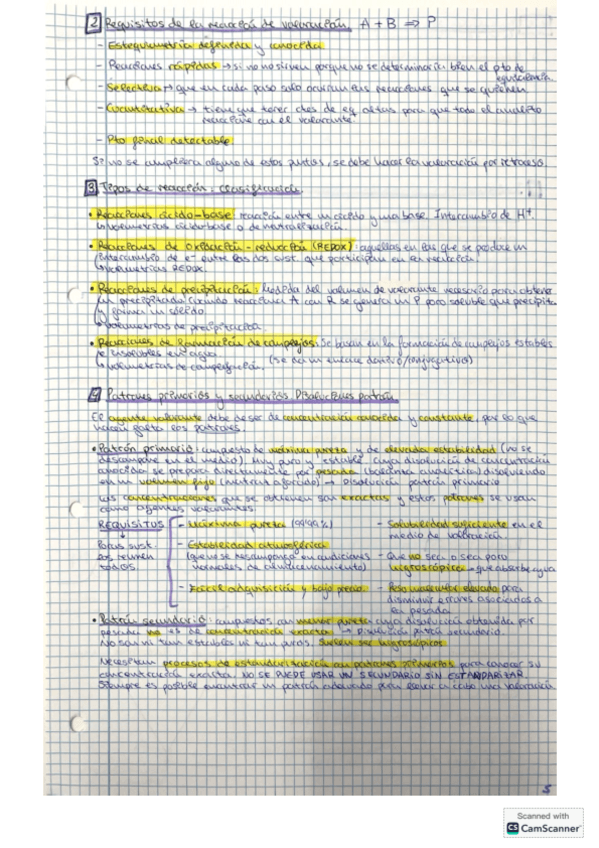 2 Requisitos de la reacción de valoración. A + B ⇒ P
- Estequiometría definida y conocida
- Reacciones rápidas → si no no sirven porque no se determinaría bien el pto de
equivalencia.
- Selectiva → que en cada paso solo ocurran las reacciones que se quieren
- Cuantitativa → tiene que tener ctes de eq altas para que todo el analito
reaccione con el valorante.
- Pto final detectable.
Si no se cumpliera alguno de estos puntos, se debe hacer la valoración por retroceso.
3 Tipos de reacción: Clasificación.
• Reacciones ácido-base: reacción entre un ácido y una base. Intercambio de H+.
volumetrías ácido base o de neutralización.
• Reacciones de Oxidación-reducción (REDOX): aquellas en las que se produce un
intercambio de e- entre los dos sist. que participan en la reacción.
volumetrías REDOX.
• Reacciones de precipitación: Medida del volumen de valorante necesario para obtener
un precipitado. Cuando reacciona A con R se genera un P poco soluble que precipita
y forma un sólido
volumetrías de precipitación.
• Reacciones de formación de complejos: Se basan en la formación de complejos estables
e insolubles en agua
volumetrías de complejación. (Se da un enlace dativo/conjugativo)
4 Patrones primarios y secundarios. Disoluciones patrón
El agente valorante debe de ser de concentración conocida y constante, por lo que
hacen falta los patrones.
• Patrón primario: compuesto de máxima pureza y de elevada estabilidad (no se
descompone en el medio). Muy puro y estable cuya disolución de concentración
conocida se prepara directamente por pesada (balanza analítica) disolviendo
en un volumen fijo (matraz aforado) → Disolución patrón primario
Las concentraciones que se obtienen son exactas y estos patrones se usan
como agentes valorantes.
REQUISITOS - Máxima pureza (99'99%) - Solubilidad suficiente en el
medio de valoración
Pocas sust. - Estabilidad atmosférica
las reúnen (que no se descomponga en condiciones - Que no sea o sea poco
todas. normales de almacenamiento) higroscópico → que absorbe agua
- Fácil adquisición y bajo precio. - Peso molecular elevado para
disminuir errores asociados a
la pesada
• Patrón secundario: compuestos con menor pureza cuya disolución obtenida por
pesada no es de concentración exacta → Disolución patrón secundario.
No son ni tan estables ni tan puros. Suelen ser higroscópicos
Necesitan procesos de estandarización con patrones primarios para conocer su
concentración exacta. NO SE PUEDE USAR UN SECUNDARIO SIN ESTANDARIZAR.
Siempre es posible encontrar un patrón adecuado para llevar a cabo una valoración
5
Scanned with
CS CamScanner